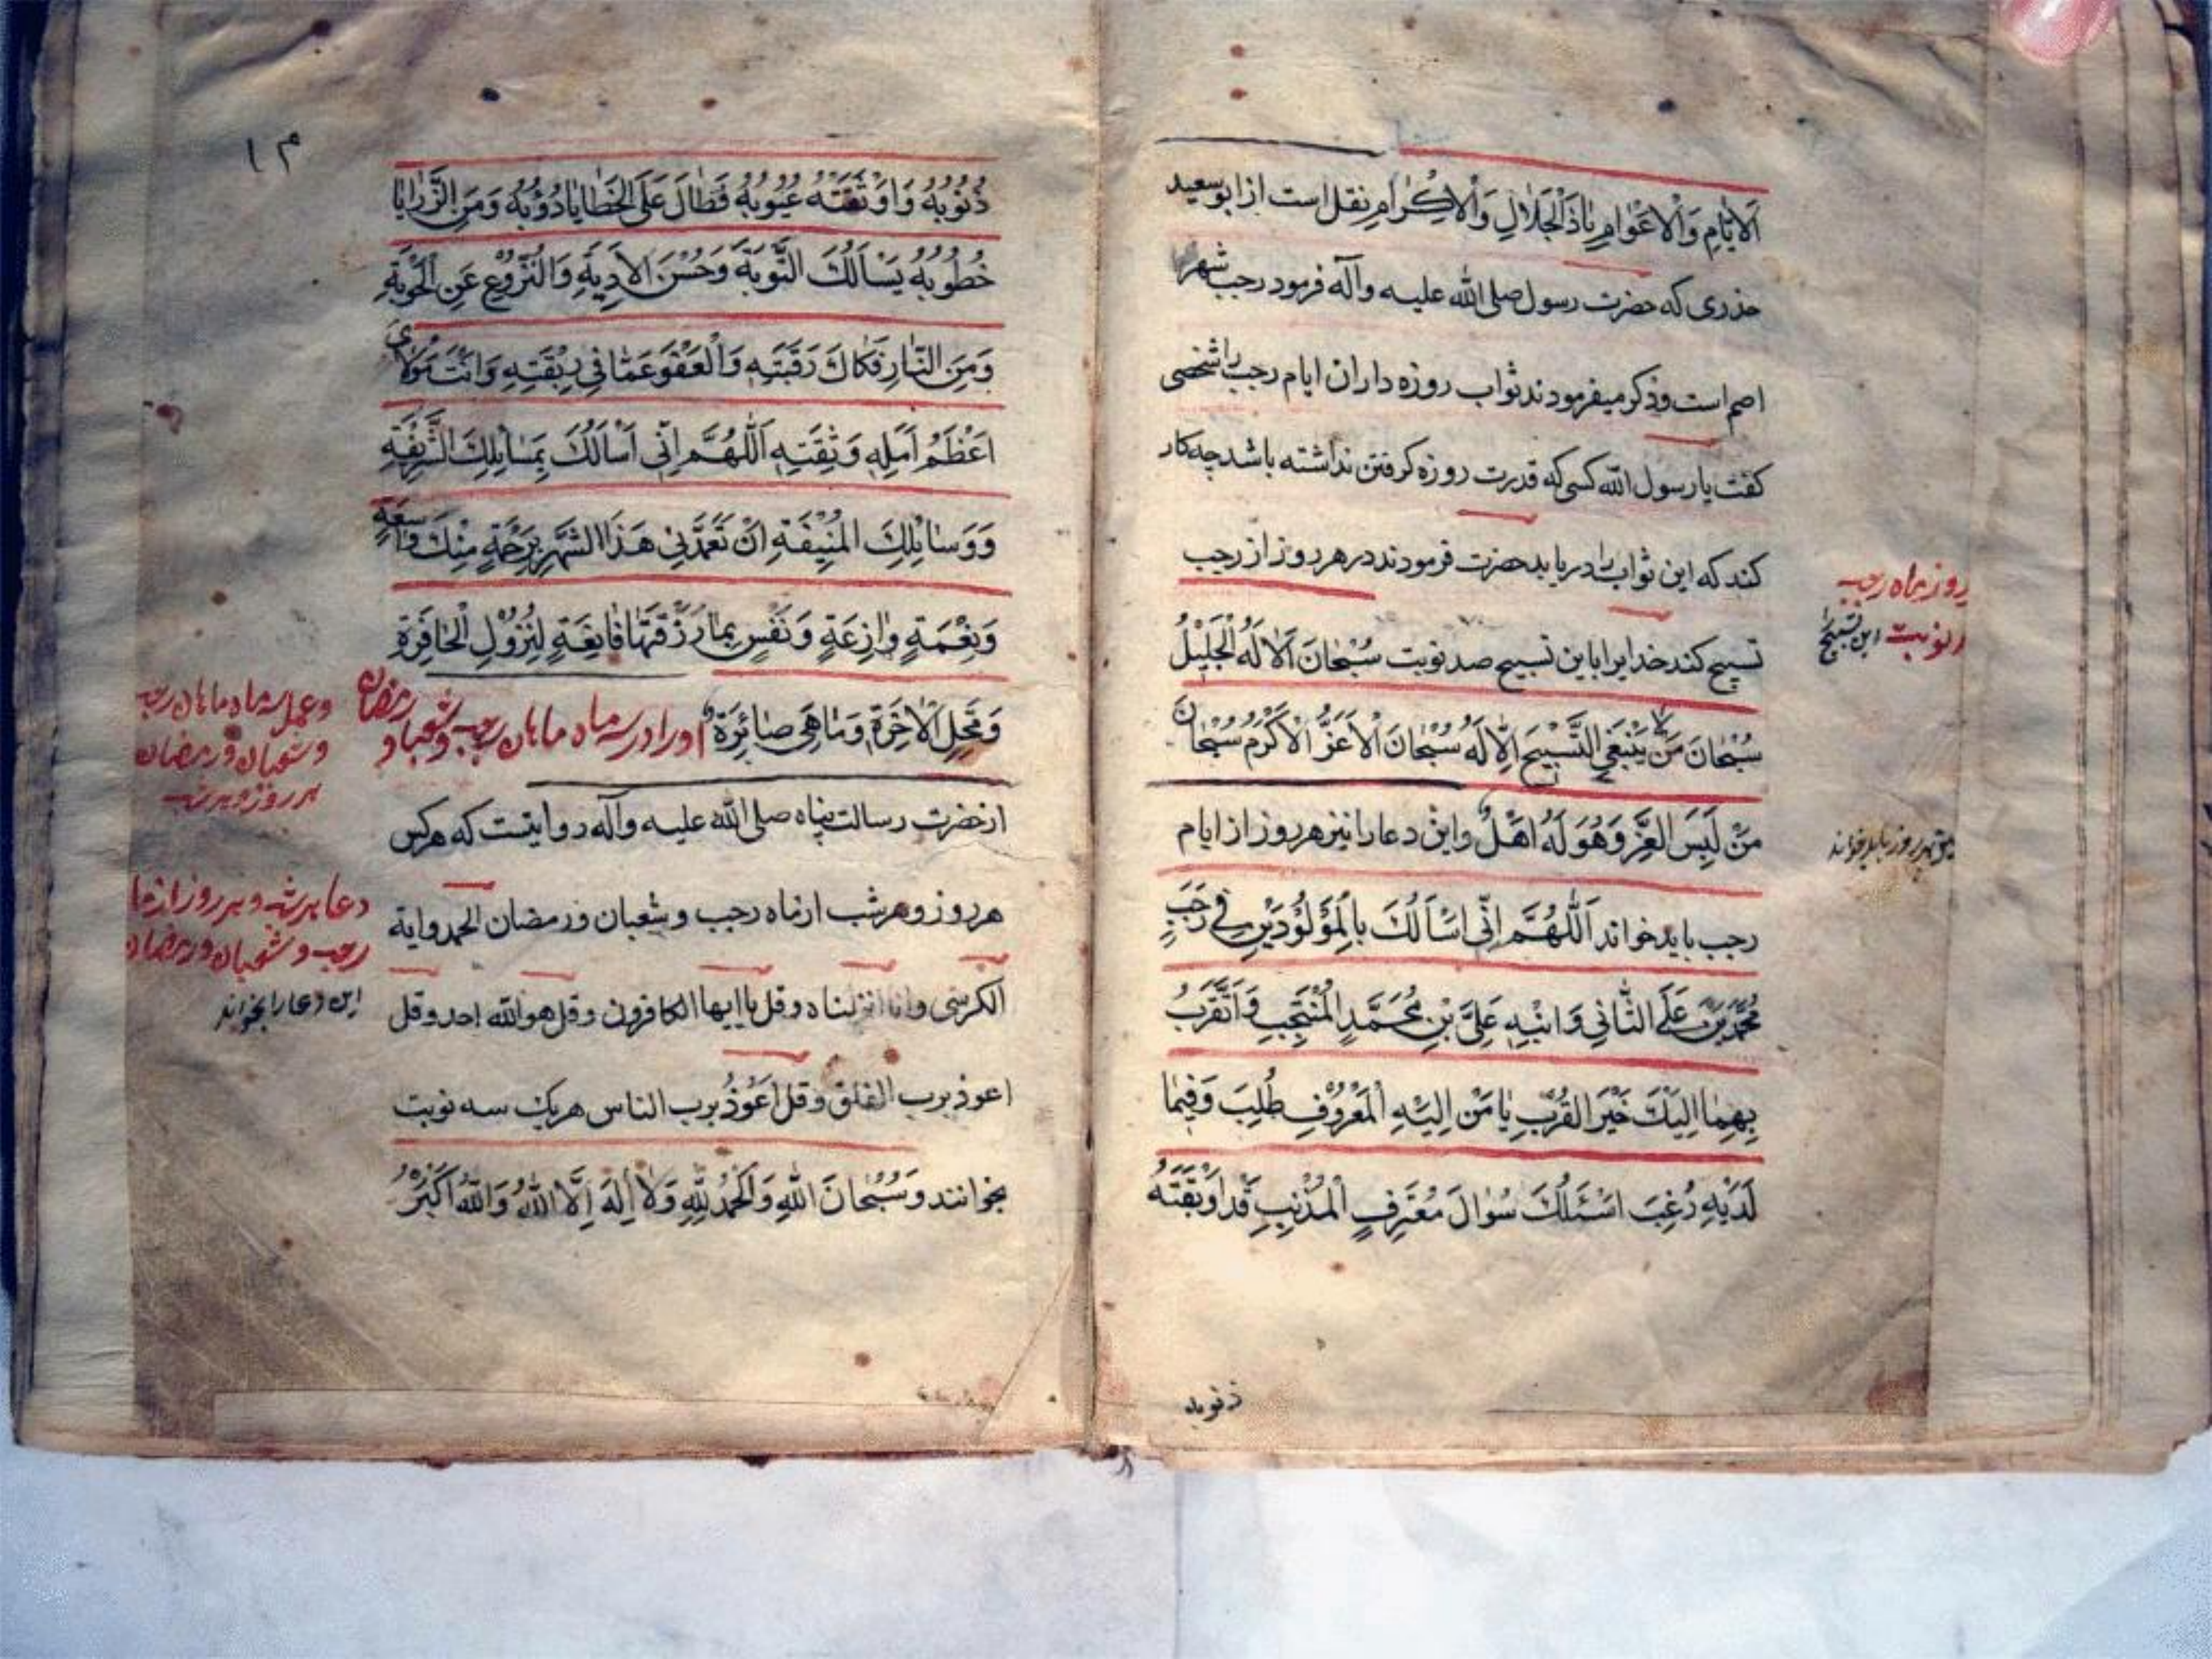 اَلاَیّامِ وَالْاَعْوامِ یاذَالْجَلالِ وَالْاِکْرامِ نقل است از ابوسعید
خذری که حضرت رسول صلی الله علیه وآله فرمود رجب شهر
اصم است وذکر میفرمودند ثواب روزه داران ایام رجب را شخصی
کفت یا رسول الله کسی که قدرت روزه کرفتن نداشته باشد چه کار
کند که این ثواب را دریابد حضرت فرمودند در هر روز از رجب
تسبیح کند خدایرا باین تسبیح صد نوبت سُبْحانَ اَلاِلَهُ الْجَلَیْلُ
سُبْحانَ مَنْ لا یَنْبَغِی التَّسْبیحَ اِلّا لَهُ سُبْحانَ الْاَعَزُّ الْاَکْرَمُ سُبْحانَ
مَنْ لَبِسَ العِزَّ وَهُوَ لَهُ اَهْلٌ واین دعا را نیز هر روز از ایام
رجب باید خواند اَللّهُمَّ اِنّی اَسْاَلُکَ بِالْمَوْلُوْدَیْنِ فی رَجَبٍ
مُحَمَّدِ بْنِ عَلَی الثّانی وَابْنِهِ عَلِیَّ بْنِ مُحَمَّدٍ الْمُنْتَجَبِ وَاَتَقَرَّبُ
بِهِمٰا اِلَیْکَ خَیْرَ القُرَبِ یٰا مَنْ اِلَیْهِ الْمَعْرُوْفِ طُلِبَ وَفیمٰا
لَدَیْهِ رُغِبَ اَسْئَلُکَ سُوالَ مُعْتَرِفٍ الْمُذْنِبِ قَدْ اَوْبَقَتْهُ
روز ماه رجب
این تسبیح
ذنوبه
۱۳
ذُنُوْبُهُ وَاَوْثَقَتْهُ عُیُوبُهُ فَطالَ عَلَی الخَطایا دُوُبُهُ وَمِنَ الرَّزایا
خُطُوبُهُ یَسْاَلُکَ التَّوبَةَ وَحُسْنَ الاَدِبَةِ وَالنُّزُوْعِ عَنِ الْحَوْبَةِ
وَمِنَ النّارِ فَکاکَ رَقَبَتِهِ وَالْعَفْوَ عَمّا فی رِبْقَتِهِ وَاَنْتَ مَوْلایَ
اَعْظَمُ اَمَلِهِ وَثِقَتِهِ اَللّهُمَّ اِنّی اَسْاَلُکَ بِمَسائِلِکَ الشَّریفَةِ
وَوَسائِلِکَ المُنیْفَةِ اَنْ تَغَمَّدَنی هَذَا الشَّهْرِ بِرَحْمَةٍ مِنْکَ واسِعَةٍ
وَنِعْمَةٍ وازِعَةٍ وَنَفْسٍ بِما رَزَقْتَها قانِعَةٍ لِنُزُوْلِ الْحافِرَةِ
وَمَحَلِ الْاخِرَةِ وَمٰا هِیَ صٰائِرَةٌ اوراد سه ماه ماهان رجب وشعبان و رمضان
از حضرت رسالت پناه صلی الله علیه وآله روایتست که هرکس
هر روز و هرشب از ماه رجب و شعبان ورمضان الحمد وایة
الکرسی وانا انزلناه وقل یا ایها الکافرون وقل هوالله احد وقل
اعوذ برب الفلق وقل اَعُوذُ برب الناس هریک سه نوبت
بخوانند وَسُبْحانَ اللهِ وَالْحَمْدُ لِلّهِ وَلا اِلهَ اِلَّا اللهُ وَاللهُ اَکْبَرُ
وعمل سه ماه ماهان رجب
وشعبان ورمضان
هر روز وهر شب
دعا هر شب و هر روز از ماه
رجب وشعبان ورمضان
این دعا را بخواند